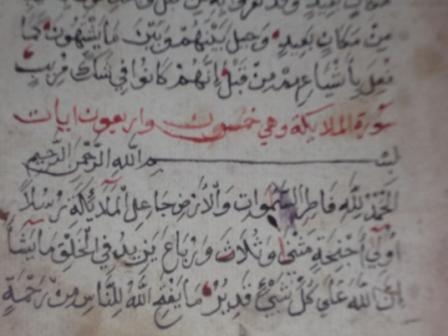 مكان بعيد وقد كفروا به من قبل
مِنْ مَكَانٍ بَعِيدٍ وَحِيلَ بَيْنَهُمْ وَبَيْنَ مَا يَشْتَهُونَ كَمَا
فُعِلَ بِأَشْيَاعِهِمْ مِنْ قَبْلُ إِنَّهُمْ كَانُوا فِي شَكٍّ مُرِيبٍ
سورة الملايكة وهي خمسون واربعون ايات
بسم الله الرَّحْمَنِ الرَّحِيمِ
اَلْحَمْدُ لِلَّهِ فَاطِرِ السَّمَوَاتِ وَالْأَرْضِ جَاعِلِ الْمَلَآئِكَةِ رُسُلًا
أُولِي أَجْنِحَةٍ مَثْنَى وَثُلَاثَ وَرُبَاعَ يَزِيدُ فِي الْخَلْقِ مَا يَشَآءُ
إِنَّ اللَّهَ عَلَى كُلِّ شَيْءٍ قَدِيرٌ مَا يَفْتَحِ اللَّهُ لِلنَّاسِ مِنْ رَحْمَةٍ